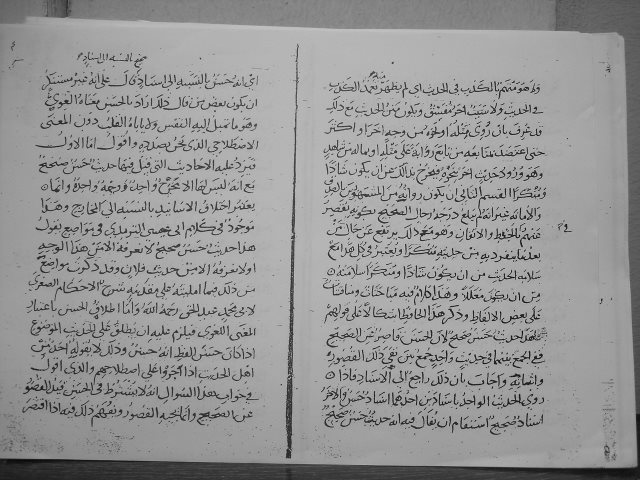 ولا هو متهم بالكذب في الحديث اي لم يظهر تعمد الكذب
في الحديث ولا سبب آخر مفسق ويكون متن الحديث مع ذلك
قد عرف بان روي مثله او نحوه من وجه اخر او اكثر
حتى اعتضد بمتابعة من تابع راويه على مثله او بماله من شاهد
وهو ورود حديث اخر نحوه فيخرج بذلك عن ان يكون شاذا
ومنكرا القسم الثاني ان يكون راويه من المشهورين بالصدق
والامانة غير انه لم يبلغ درجة رجال الصحيح لكونه يقصر
عنهم في الحفظ والاتقان وهو مع ذلك يرتفع عن حال من
يعد ما ينفرد به من حديثه منكرا ويعتبر في كل هذا مع
سلامة الحديث من ان يكون شاذا ومنكرا سلامته
من ان يكون معللا وهذا كلام فيه مباحثات ومناقشات
على بعض الالفاظ وذكر هذا الحافظ اشكالا على قولهم
هذا حديث حسن صحيح لان الحسن قاصر عن الصحيح
ففي الجمع بينهما في حديث واحد جمع بين نفي ذلك القصور
واثباته واجاب بان ذلك راجع الى الاسناد فاذا
روى الحديث الواحد باسنادين احدهما اسناد حسن والاخر
اسناد صحيح استقام ان يقال فيه انه حديث حسن صحيح
اي انه حسن بالنسبة الى اسناد قال على انه غير مستنكر
ان يكون بعض من قال ذلك اراد بالحسن معناه اللغوي
وهو ما تميل اليه النفس ولا ياباه القلب دون المعنى
الاصطلاحي الذي نحن بصدده واقول اما الاول
فيرد عليه الاحاديث التي قيل فيها حديث حسن صحيح
مع انه ليس لها الا مخرج واحد ووجهة واحدة وانما
يعتبر اختلاف الاسانيد بالنسبة الى المخارج وهذا
موجود في كلام ابي عيسى الترمذي في مواضع يقول
هذا حديث حسن صحيح لا نعرفه الا من هذا الوجه
او لا نعرفه الا من حديث فلان وقد ذكرت مواضع
من ذلك فيما امليته على مقدمة شرح الاحكام الصغرى
لابي محمد عبد الحق رحمه الله واما اطلاق الحسن باعتبار
المعنى اللغوي فيلزم عليه ان يطلق على الحديث الموضوع
اذا كان حسن اللفظ انه حسن وذلك لا يقوله احد من
اهل الحديث اذا جروا على اصطلاحهم والذي اقول
في جواب هذا السوال انه لا يشترط في الحسن قيد القصور
عن الصحيح وانما يجيه القصور ويفهم ذلك فيه اذا اقتصر